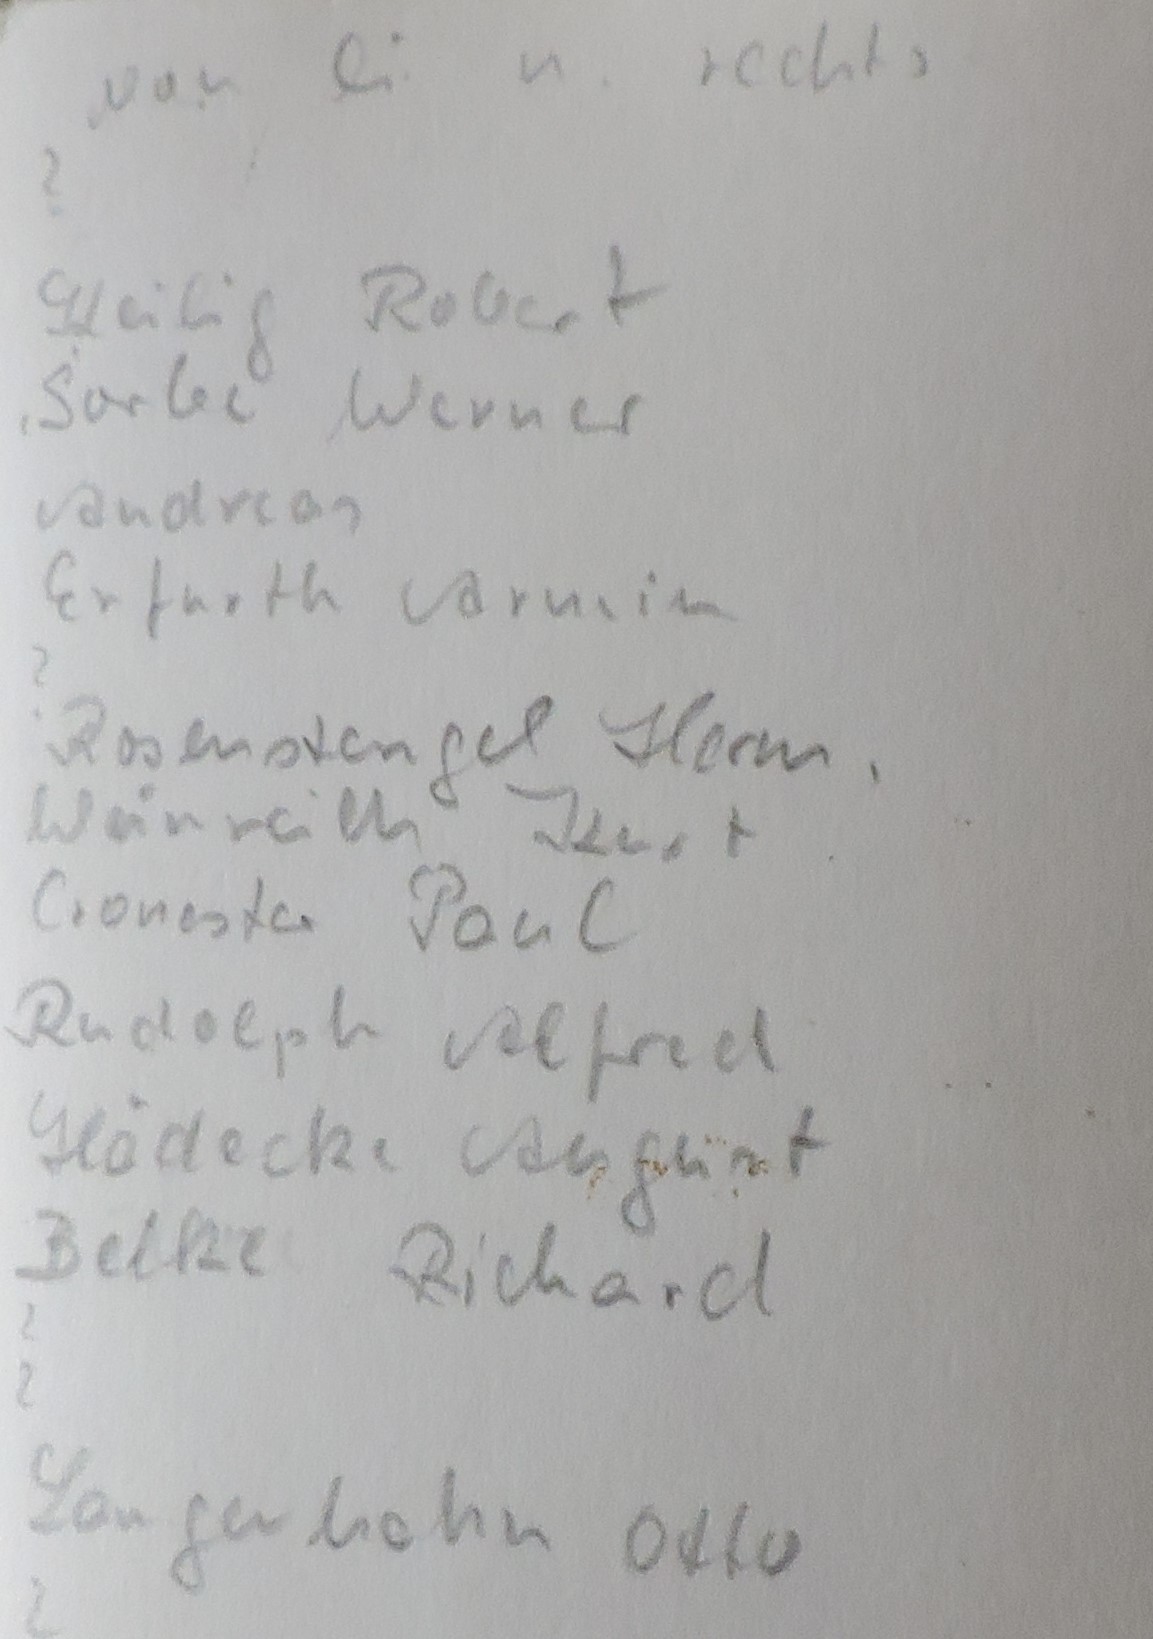 von li. n. rechts
?
Heilig Robert
Sorbe Werner
Andreas
Erfurth Armin
?
Rosenstengel Herm.
Weinreich Kurt
Paul
Rudolph Alfred
Hödecke August
Belke Richard
?
?
Langenhahn Otto
?